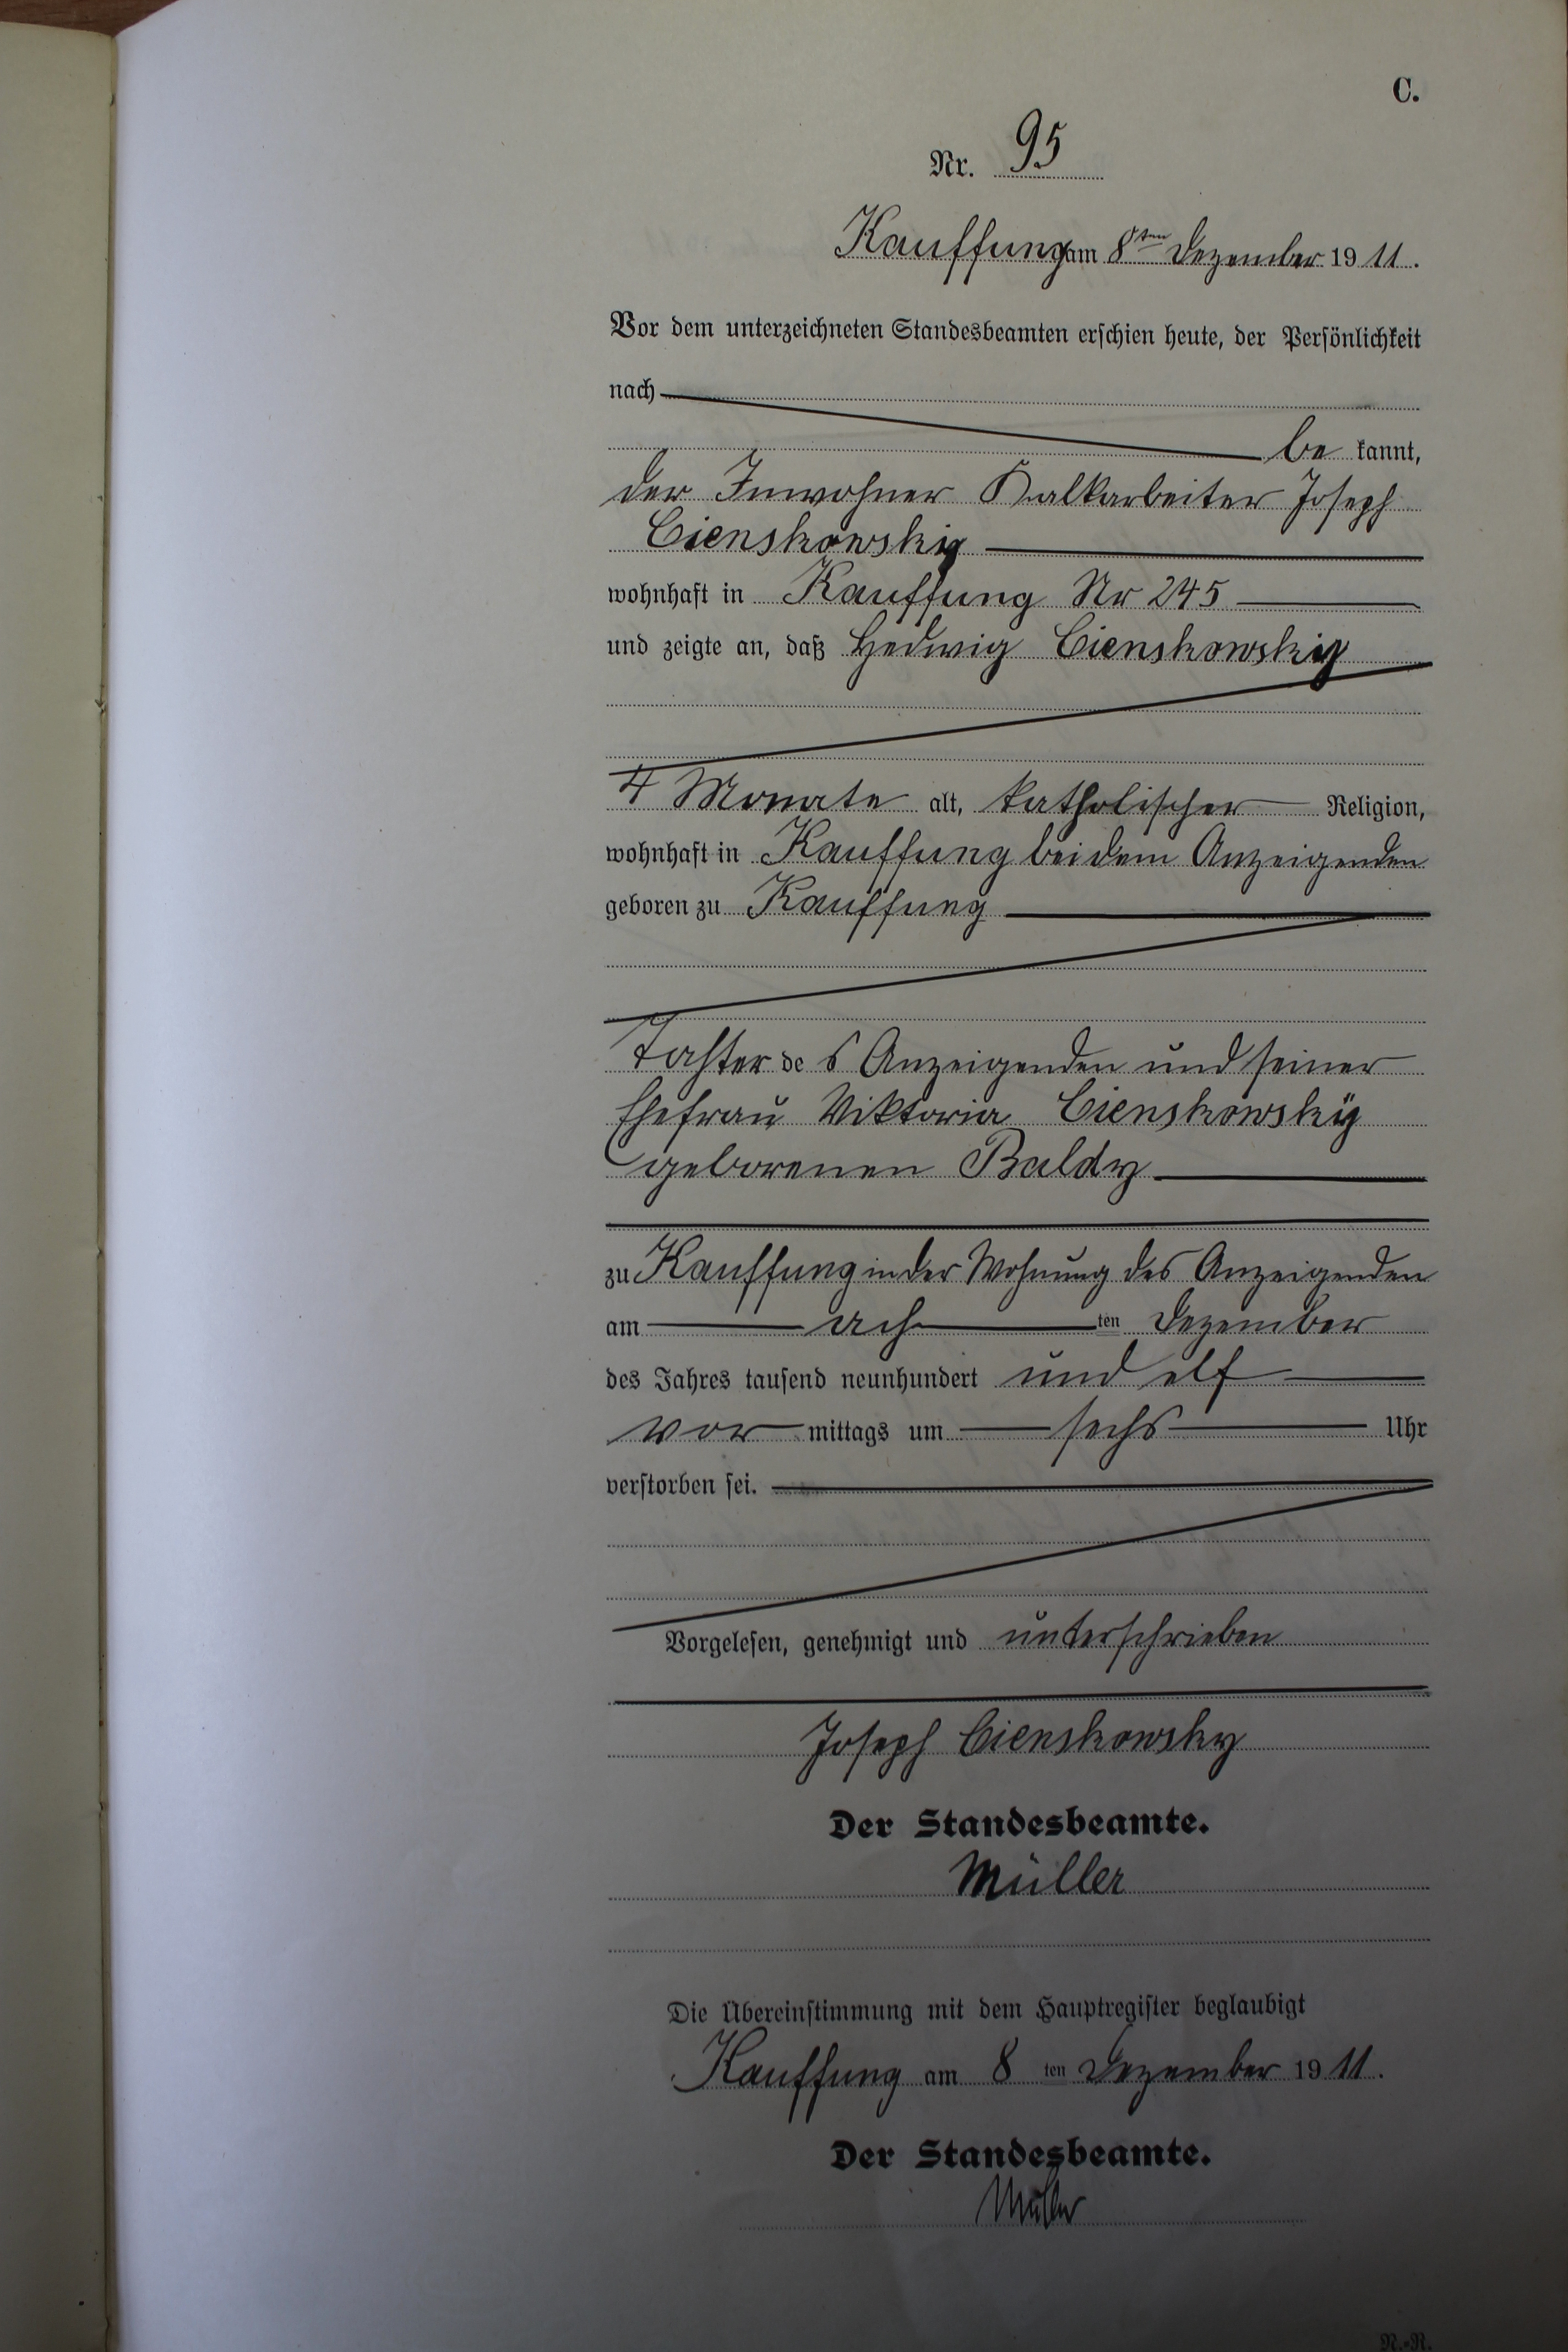 C.
Nr. 95
Kauffung am 8ten Dezember 1911.
Vor dem unterzeichneten Standesbeamten erschien heute, der Persönlichkeit
nach
be kannt,
der Inwohner Kalkarbeiter Joseph
Cienskowsky
wohnhaft in Kauffung Nr 245
und zeigte an, daß Hedwig Cienskowsky
4 Monate alt, katholischer Religion,
wohnhaft in Kauffung bei dem Anzeigenden
geboren zu Kauffung
Tochter des Anzeigenden und seiner
Ehefrau Viktoria Cienskowsky
geborenen Baldy
zu Kauffung in der Wohnung des Anzeigenden
am ach ten Dezember
des Jahres tausend neunhundert und elf
vor mittags um sechs Uhr
verstorben sei.
Vorgelesen, genehmigt und unterschrieben
Joseph Cienskowsky
Der Standesbeamte.
Müller
Die Übereinstimmung mit dem Hauptregister beglaubigt
Kauffung am 8 ten Dezember 1911.
Der Standesbeamte.
Müller
N.-R.